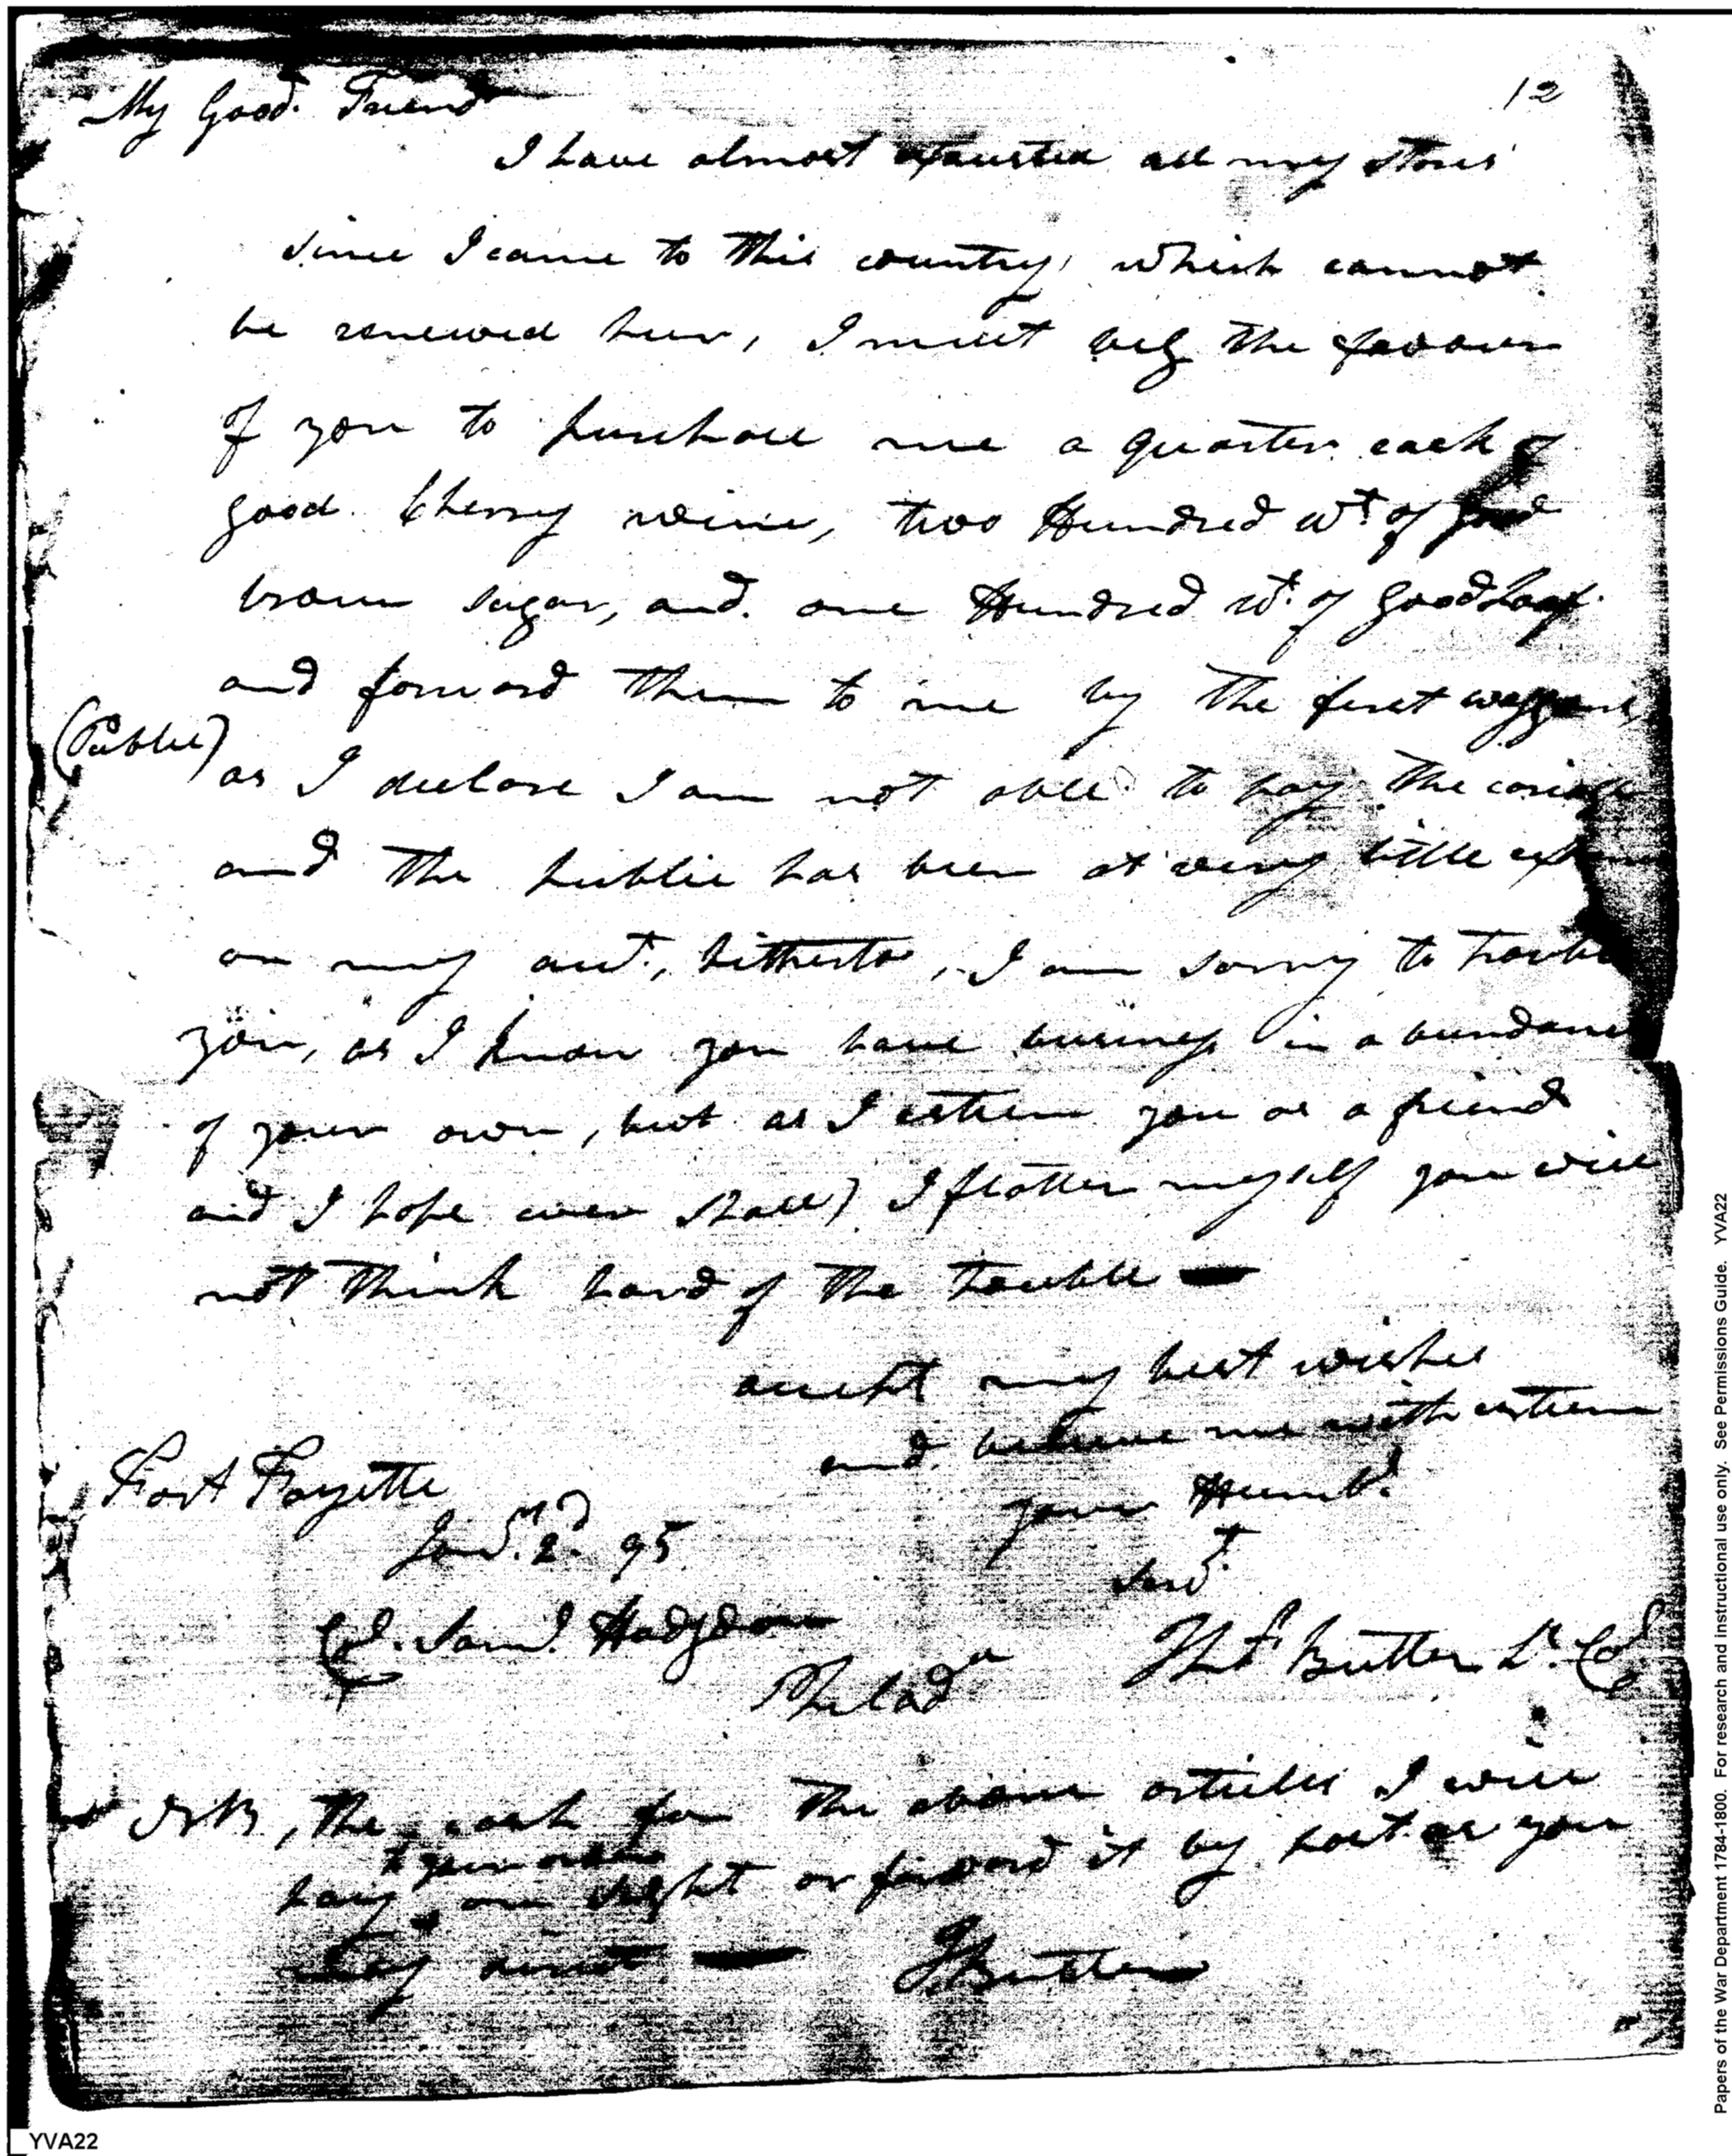 12
My Good Friend
I have almost exausted all my stores
since I came to this country, which cannot
be renewed heer, I must beg the favour
of you to purchase me a quarter cask of
good Cherry wine, two Hundred wt. of good
brown sugar, and one Hundred wt. of good Loaf.
and forword them to me by the first waggons,
(Public)
as I declare I am not able to pay the cariage
and the public has been at very little expence
on my acct., hitherto, I am sorry to trouble
you, as I know you have business in abundance
of your own, but as I esteem you as a friend
and I hope ever shall) I flatter myself you will
not think hard of the trouble —
accept my best wishes
and believe me with esteem
your Humbl.
servt.
Fort Fayette
Jany. 2d. 95
Col. Saml. Hodgdon
Philada
Thos. Butler Lt. Col
NB, the cash for the above articles I will
to your order
pay on sight or forword it by post as you
may direct — T Butler
YVA22
Papers of the War Department 1784-1800. For research and instructional use only. See Permissions Guide. YVA22